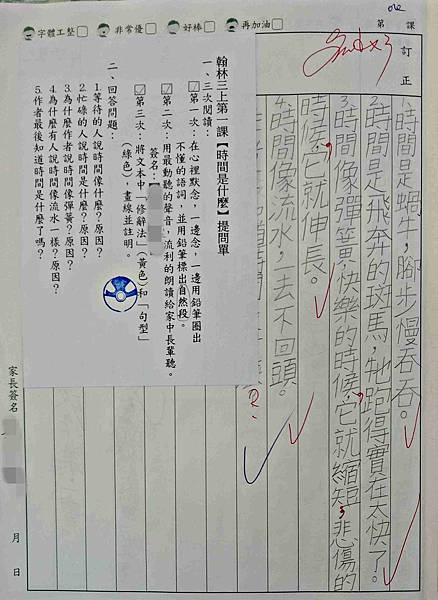 字體工整 非常優 好棒 再加油
第 課
訂正
1.時間是蝸牛,腳步慢吞吞。
2.時間是飛奔的斑馬,牠跑得實在太快了。
3.時間像彈簧,快樂的時候,它就縮短,悲傷的
時候,它就伸長。
4.時間像流水,一去不回頭。
翰林三上第一課【時間是什麼】提問單
一、三次閱讀:
☑第一次:在心裡默念,一邊念,一邊用鉛筆圈出
不懂的語詞,並用鉛筆標出自然段。
☑第二次:用最動聽的聲音,流利的朗讀給家中長輩聽。
簽名:【
☑第三次:將文本中「修辭法」(黃色)和「句型」
(綠色),畫線並註明。
二、回答問題:
1.等待的人說時間像什麼?原因?
2.忙碌的人說時間是什麼?原因?
3.為什麼作者說時間像彈簧?原因?
4.為什麼有人說時間像流水一樣?原因?
5.作者最後知道時間是什麼了嗎?
家長簽名
月 日